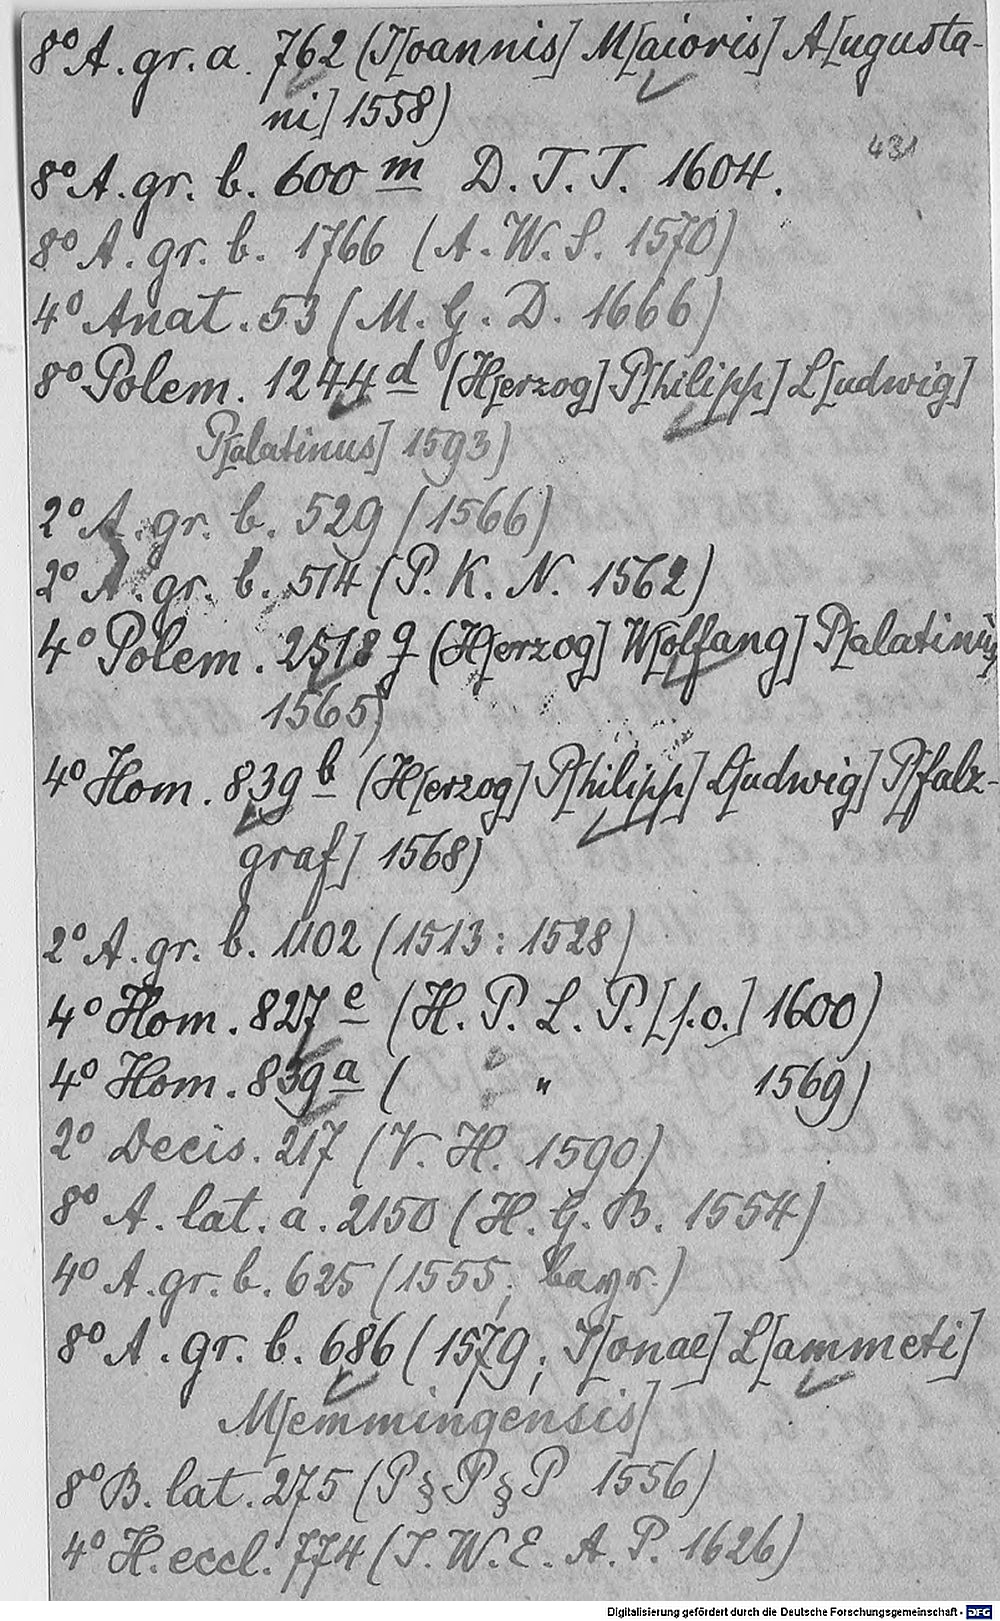 8° A. gr. a. 762 (J[oannis] M[aioris] A[ugusta-
ni] 1558)
431
8° A. gr. b. 600 m D. T. T. 1604.
8° A. gr. b. 1766 (A. W. S. 1570)
4° Anat. 53 (M. G. D. 1666)
8° Polem. 1244 d (H[erzog] P[hilipp] L[udwig]
P[alatinus] 1593)
2° A. gr. b. 529 (1566)
2° A. gr. b. 514 (P. K. N. 1562)
4° Polem. 2518 q (H[erzog] W[olfang] P[alatinus]
1565)
4° Hom. 839 b (H[erzog] P[hilipp] L[udwig] P[falz-
graf] 1568)
2° A. gr. b. 1102 (1513 : 1528)
4° Hom. 827 e (H. P. L. P. [s.o.] 1600)
4° Hom. 839 a ( " 1569)
2° Decis. 217 (V. H. 1590)
8° A. lat. a. 2150 (H. G. B. 1554)
4° A. gr. b. 625 (1555; bayr.)
8° A. gr. b. 686 (1579; J[onae] L[ammeti]
M[emmingensis]
8° B. lat. 275 (P § P § P 1556)
4° H. eccl. 774 (J. W. E. A. P. 1626)
Digitalisierung gefördert durch die Deutsche Forschungsgemeinschaft - DFG